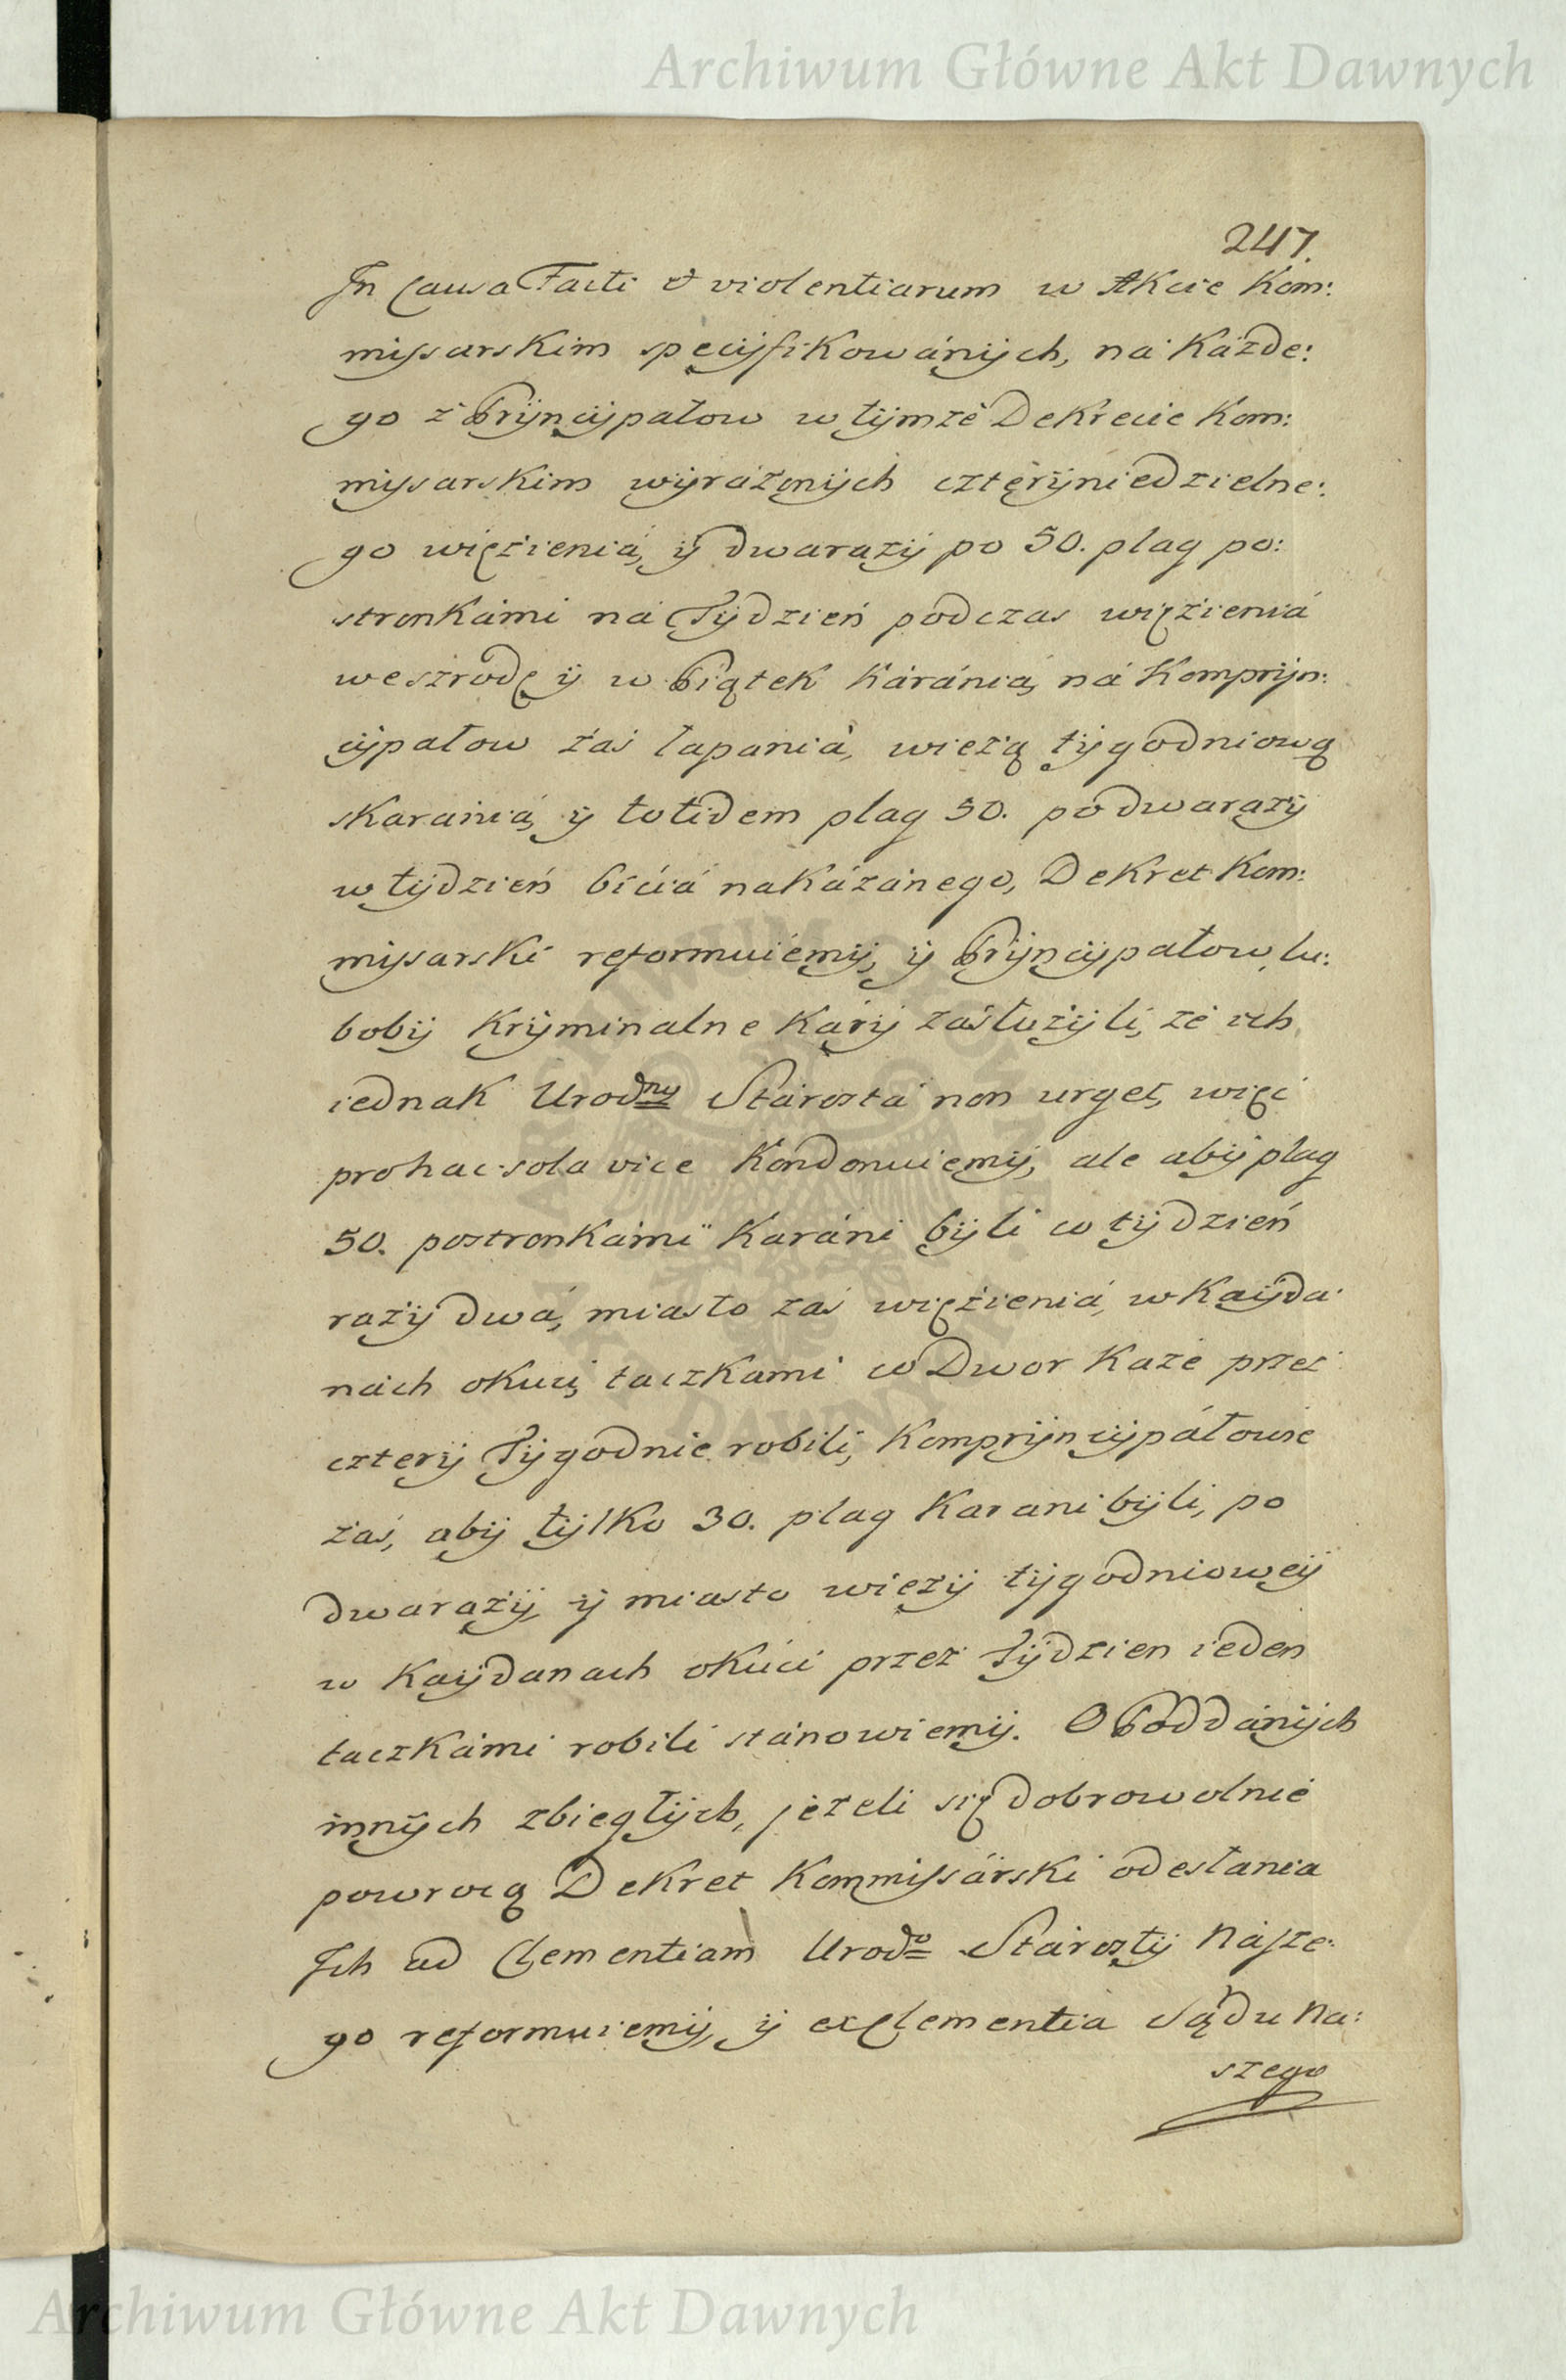 Archiwum Główne Akt Dawnych
247.
In Causa Facti & violentiarum w Akcie Kom:
missarskim specijfikowánijch, ná Kázde:
go z Prijncijpałow w tijmże Dekrecie Kom:
missarskim wijráżonijch czterijniedzielne:
go więzieniá, ij dwarazij po 50. plag po:
stronkámi ná Tijdzień podczas więzieniá
weszrodę ij w Piątek káraniá, ná Komprijn:
cijpałow zaś łapaniá, wieżą tijgodniową
skaraniá, ij totidem plag 50. po dwarazij
w tijdzień biciá nakázánego, Dekret Kom:
missarski reformuiemij, ij Prijncijpałow, lu:
bobij Krijminalne Kárij zásłużijli, że ich
iednak Urodny Stárosta non urget, więc
pro hac sola vice Kondonuiemij, ale abij plag
50. postronkámi Karáni bijli w tijdzień
razij dwá, miasto zaś więzieniá, w Kaijda:
nách okuci, taczkami co Dwor Każe przez
czterij Tijgodnie robili, Komprijncijpáłowie
zaś, abij tijlko 30. plag Karani bijli, po
dwarazij, ij miasto wieżij tijgodnioweij
w Kaijdanach okúci przez Tijdzien ieden
taczkámi robili stánowiemij. O Poddánijch
innijch zbiegłijch, jeżeli się dobrowolnie
powrocą Dekret Kommissárski odesłania
Ich ad Clementiam Urodo Stárostij Násze:
go reformuiemij, ij ex Clementia Sądu Na:
szego
ARCHIWUM GŁÓWNE AKT DAWNYCH
Archiwum Główne Akt Dawnych